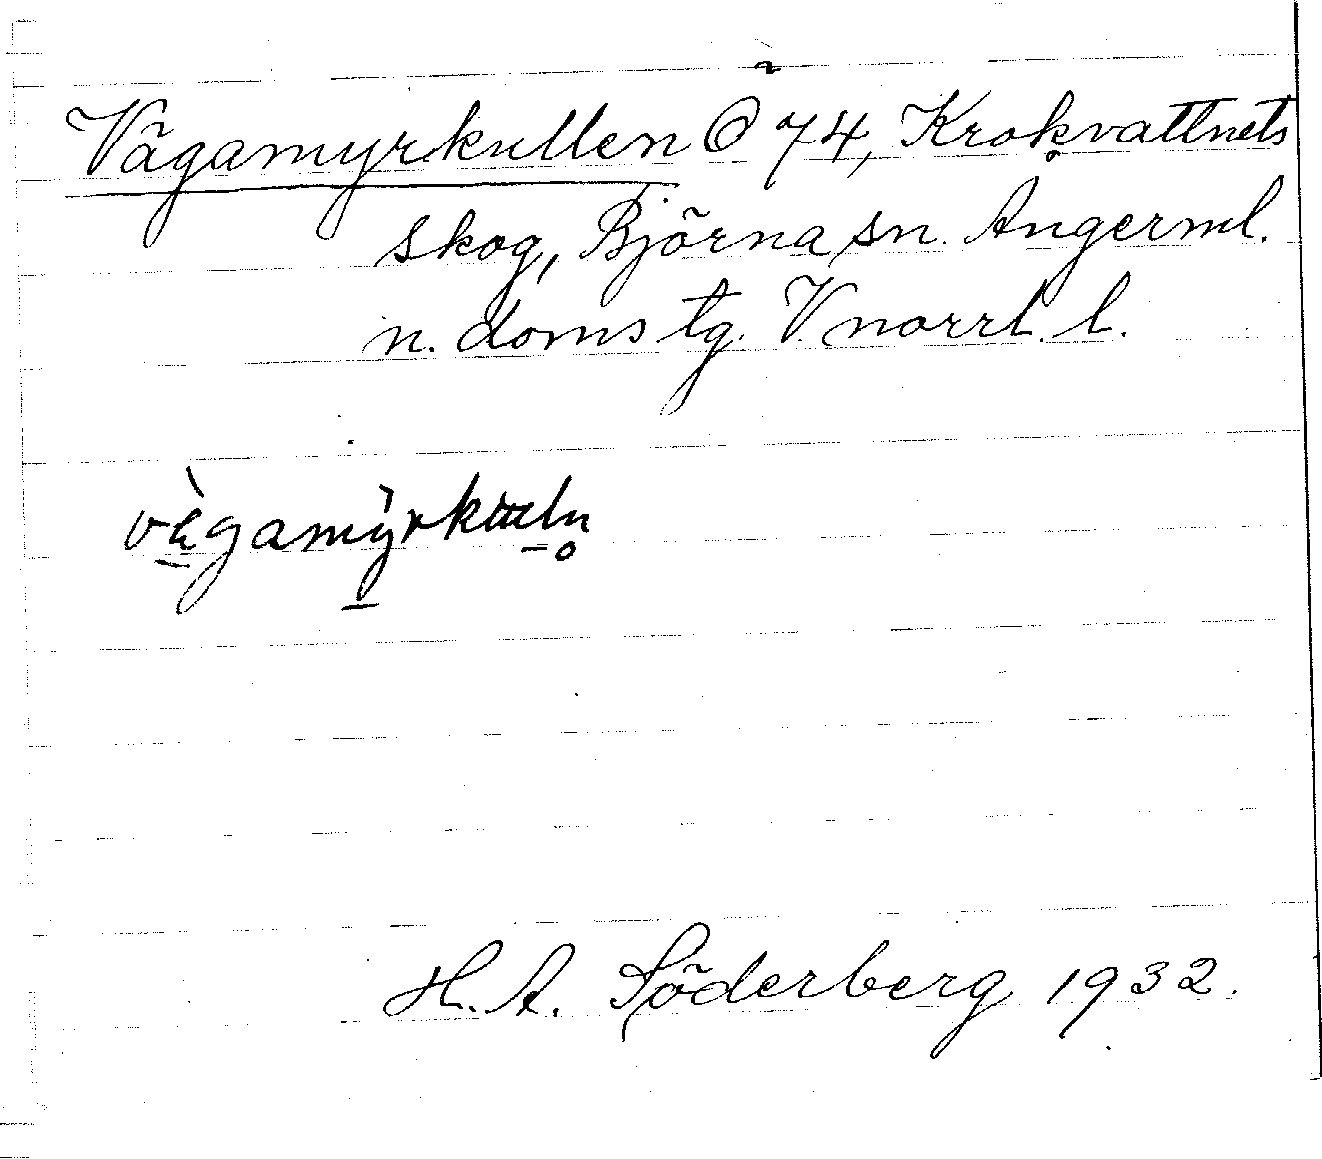 Vägamyrkullen Ö 74, Krokvattnets
skog, Björna sn. Ångerml.
n. doms tg. V. norrl. l.
H. A. Söderberg 1932.